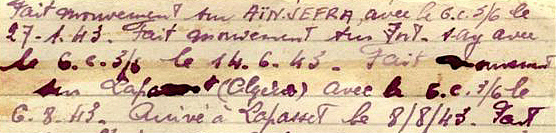 Fait mouvement sur AÏN-SEFRA, avec le G.C. 3/6 le
27-1-43. Fait mouvement sur Tnt-say avec
le G.C. 3/6 le 14.6.43. Fait mouvement
sur Lapasset (Algérie) avec le G.C. 3/6 le
6.8.43. Arrivé à Lapasset le 8/8/43. Fait